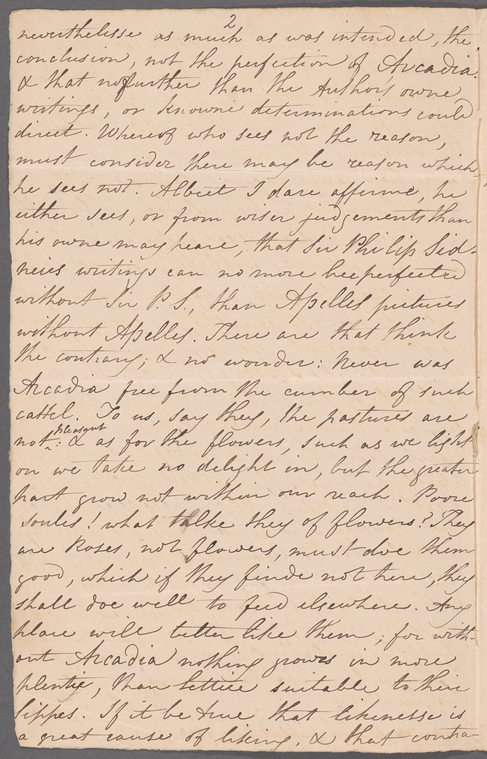 2
neverthelesse as much as was intended, the
conclusion, not the perfection of Arcadia
& that no further than the Authors owne
writings, or knowne determinations could
direct. Whereof who sees not the reason,
must consider there may be reason which
he sees not. Albeit I dare affirme, he
either sees, or from wiser judgements than
his owne may heare, that Sir Philip Sid-
neies writings can no more bee perfected
without Sir P. S., than Apelles pictures
without Apelles. There are that think
the contrary; & no wonder: Never was
Arcadia free from the cumber of such
cattel. To us, say they, the pastures are
not pleasant: & as for the flowers, such as we light
on we take no delight in, but the greater
part grow not within our reach. Poore
soules! what talke they of flowers? They
are Roses, not flowers, must doe them
good, which if they finde not here, they
shall doe well to feed elsewhere. Any
place will better like them; for with-
out Arcadia nothing growes in more
plentie, than lettice suitable to their
lippes. If it be true that likenesse is
a great cause of liking, & that contra-